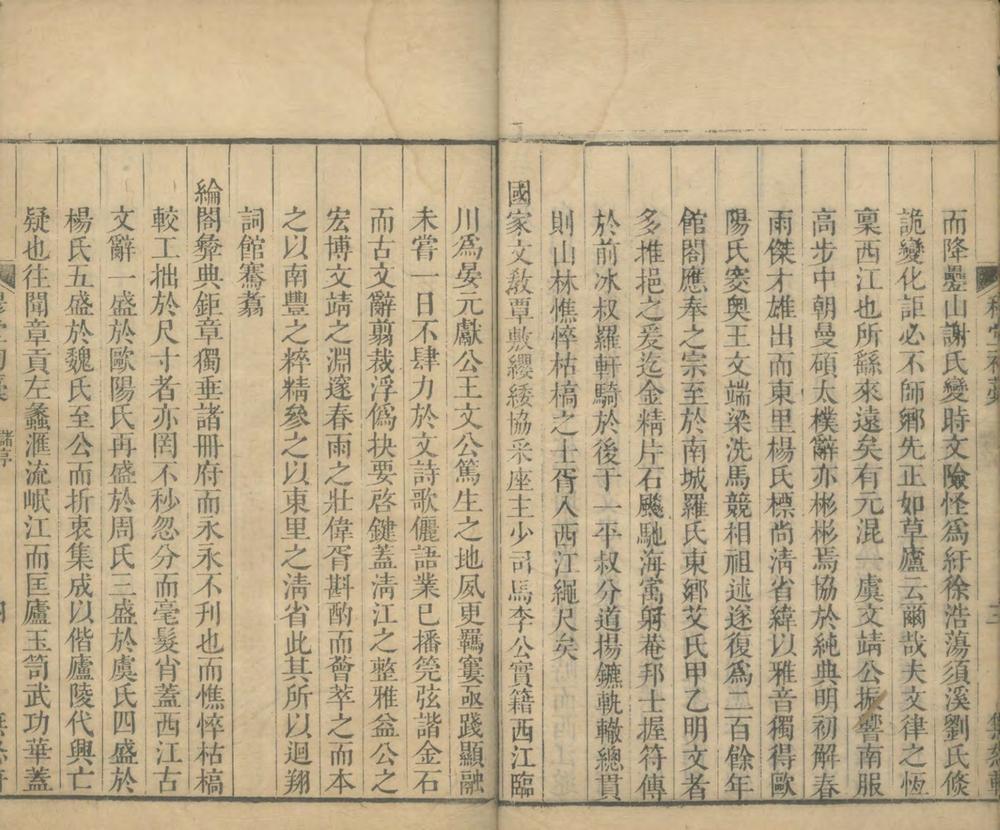 而降疊山謝氏變時文險怪為紆徐浩蕩須溪劉氏倏
詭變化詎必不師鄉先正如草廬云爾哉夫文律之恆
稟西江也所繇來遠矣有元混一虞文靖公振響南服
高步中朝曼碩太樸辭亦彬彬焉協於純典明初解春
雨傑才雄出而東里楊氏標尚清省緯以雅音獨得歐
陽氏窔奧王文端梁洗馬競相祖述遂復為二百餘年
館閣應奉之宗至於南城羅氏東鄉艾氏甲乙明文者
多推挹之爰迄金精片石颷馳海寓躬菴邦士握符傳
於前冰叔羅軒騎於後于一平叔分道揚鑣軌轍總貫
則山林憔悴枯槁之士胥入西江繩尺矣
國家文教覃敷纓緌協采座主少司馬李公實籍西江臨
川為晏元獻公王文公篤生之地夙更羈寠亟踐顯融
未嘗一日不肆力於文詩歌儷語業已播筦弦諧金石
而古文辭翦裁浮偽抉要啓鍵蓋清江之整雅益公之
宏博文靖之淵邃春雨之壯偉胥斟酌而薈萃之而本
之以南豐之粹精參之以東里之清省此其所以迴翔
詞館騫翥
綸閣彝典鉅章獨垂諸冊府而永永不刊也而憔悴枯槁
較工拙於尺寸者亦罔不秒忽分而毫髮肖蓋西江古
文辭一盛於歐陽氏再盛於周氏三盛於虞氏四盛於
楊氏五盛於魏氏至公而折衷集成以偕廬陵代興亡
疑也往聞章貢左蠡滙流岷江而匡廬玉笥武功華蓋